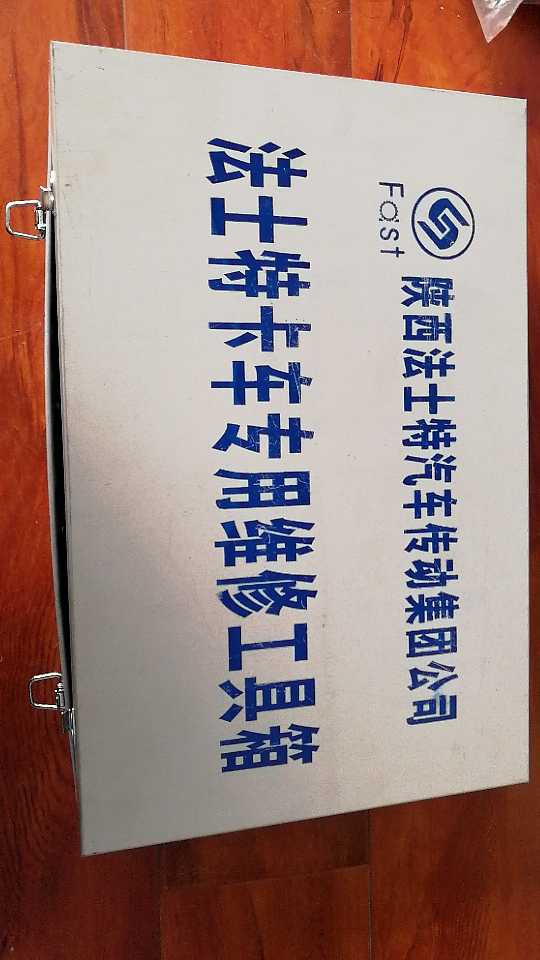 Fast
陕西法士特汽车传动集团公司
法士特卡车专用维修工具箱